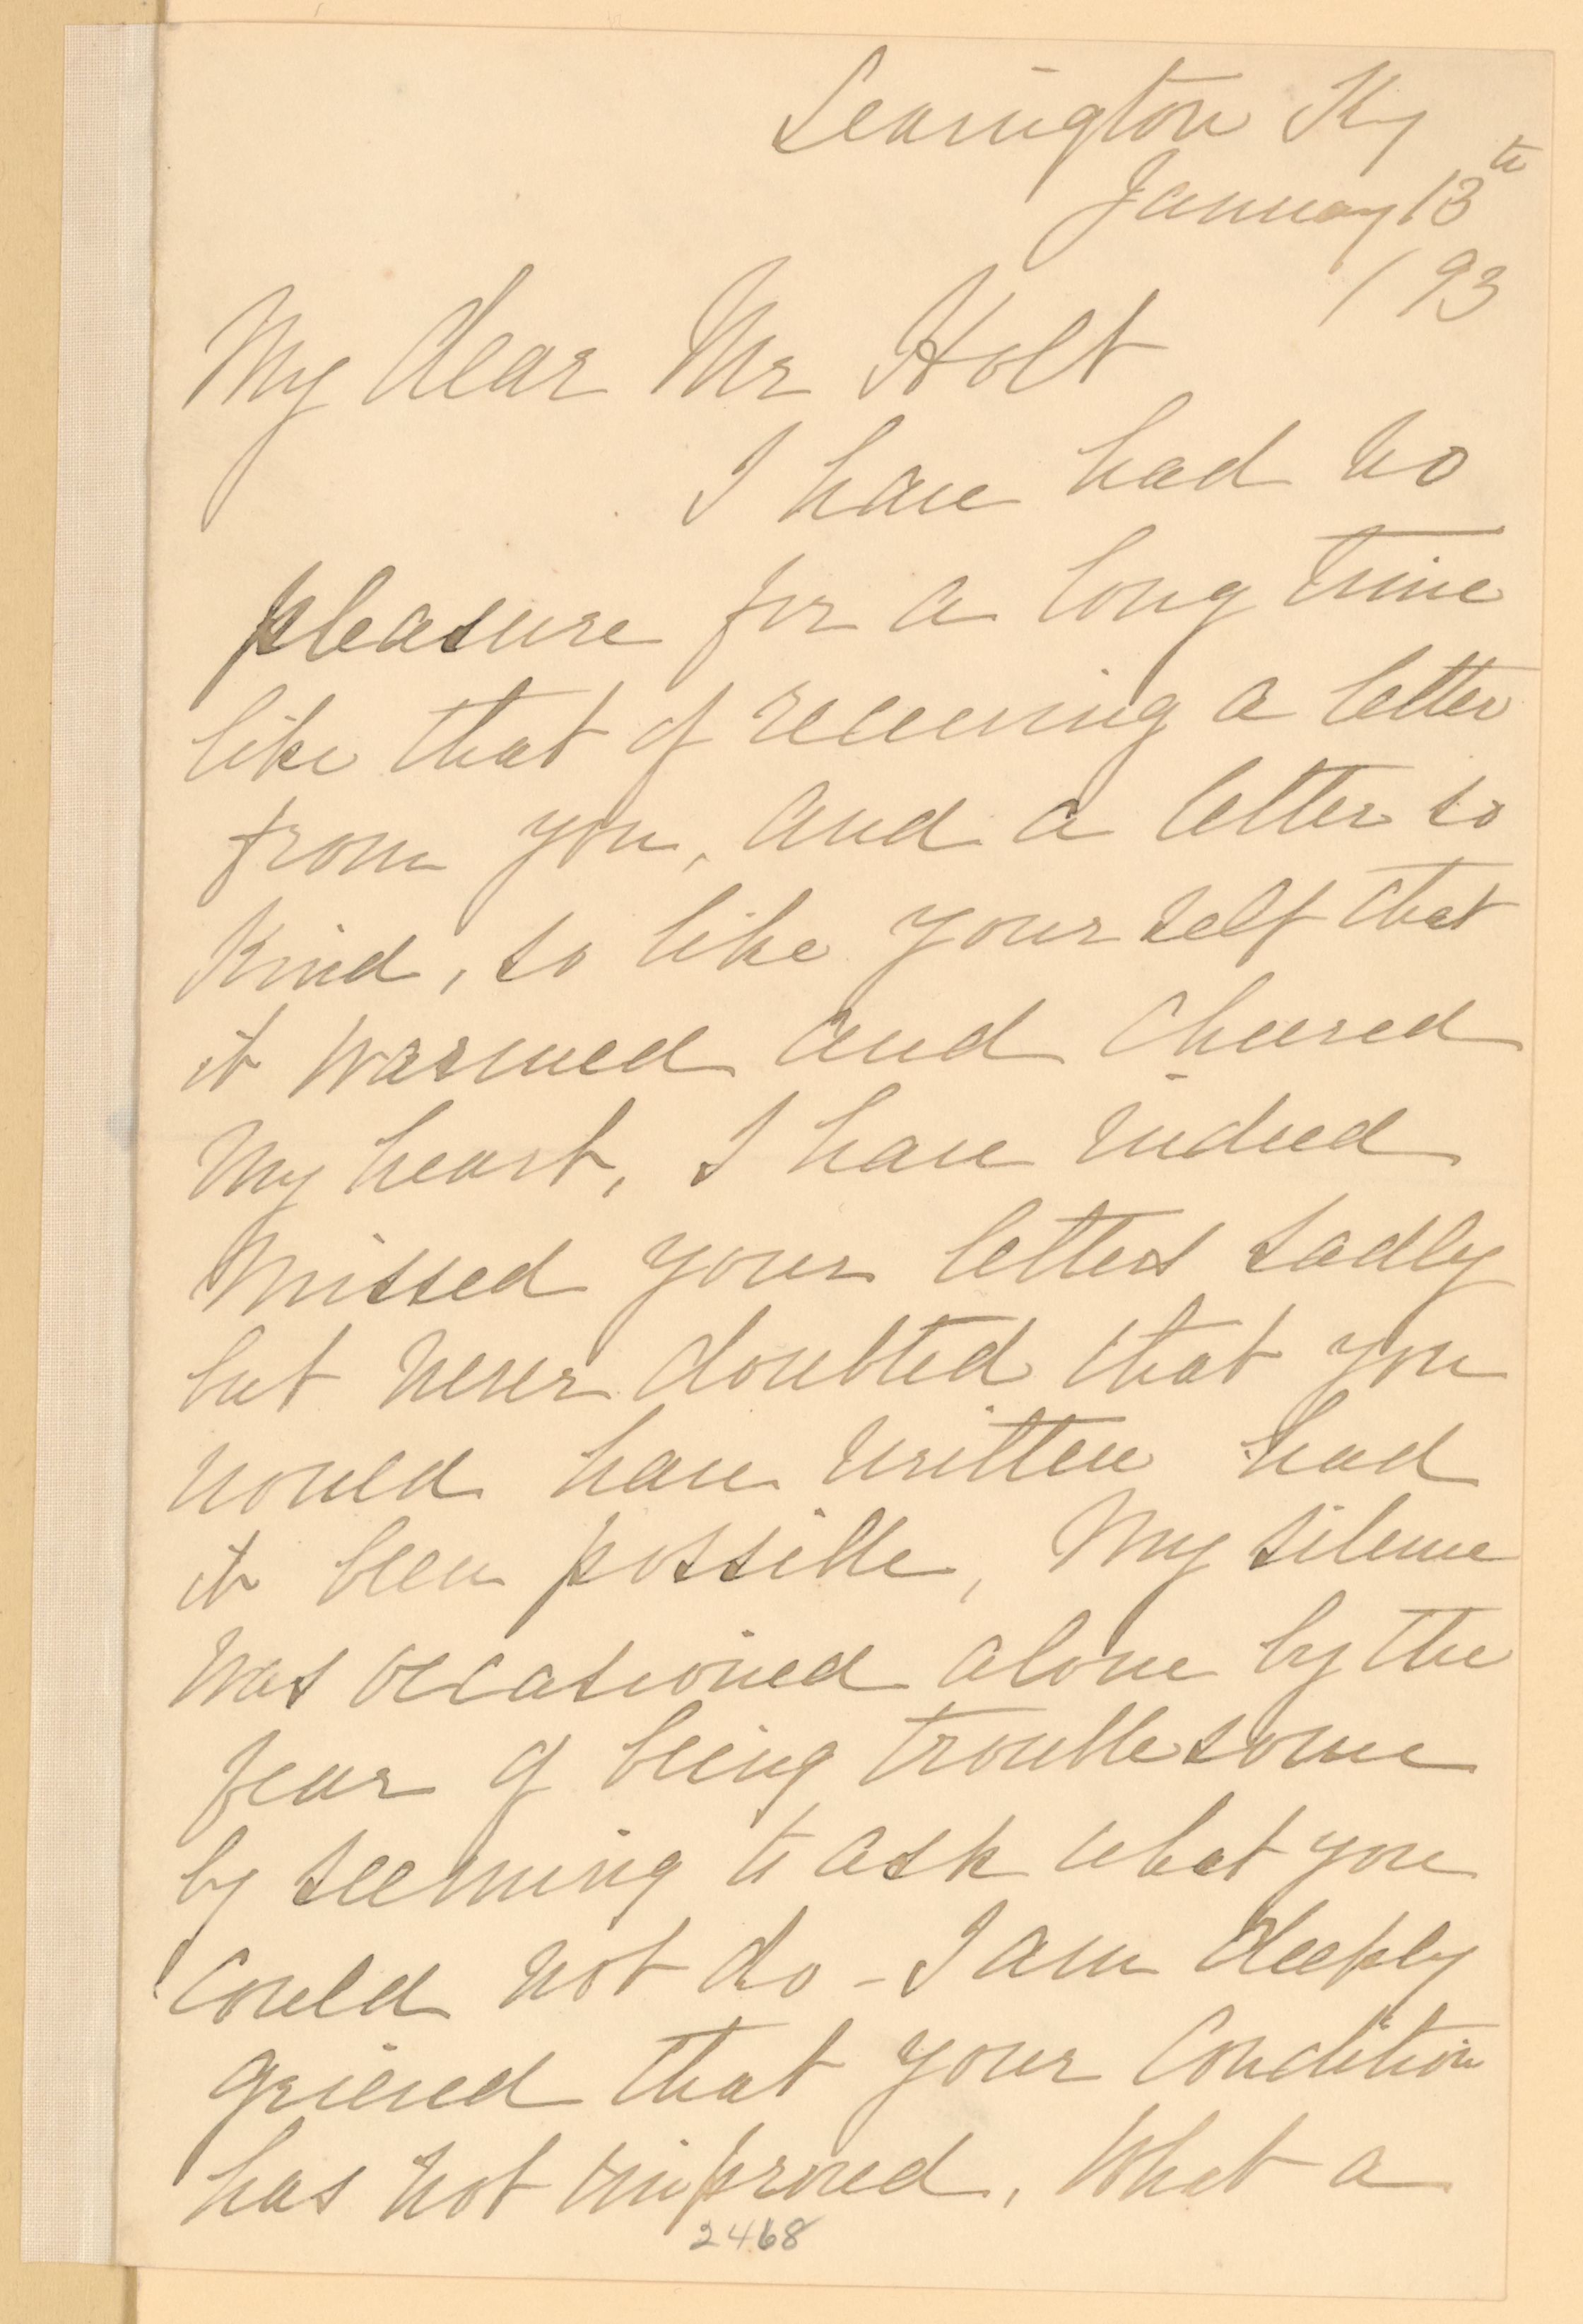 Lexington Ky
January 13th
/93
My dear Mr Holt
I have had no
pleasure for a long time
like that of receiving a letter
from you, and a letter so
kind, so like yourself that
it warmed and cheered
my heart, I have indeed
missed your letters sadly
but never doubted that you
would have written had
it been possible, My silence
was occasioned alone by the
fear of being troublesome
by seeming to ask what you
could not do - I am deeply
grieved that your condition
has not improved, What a
2468